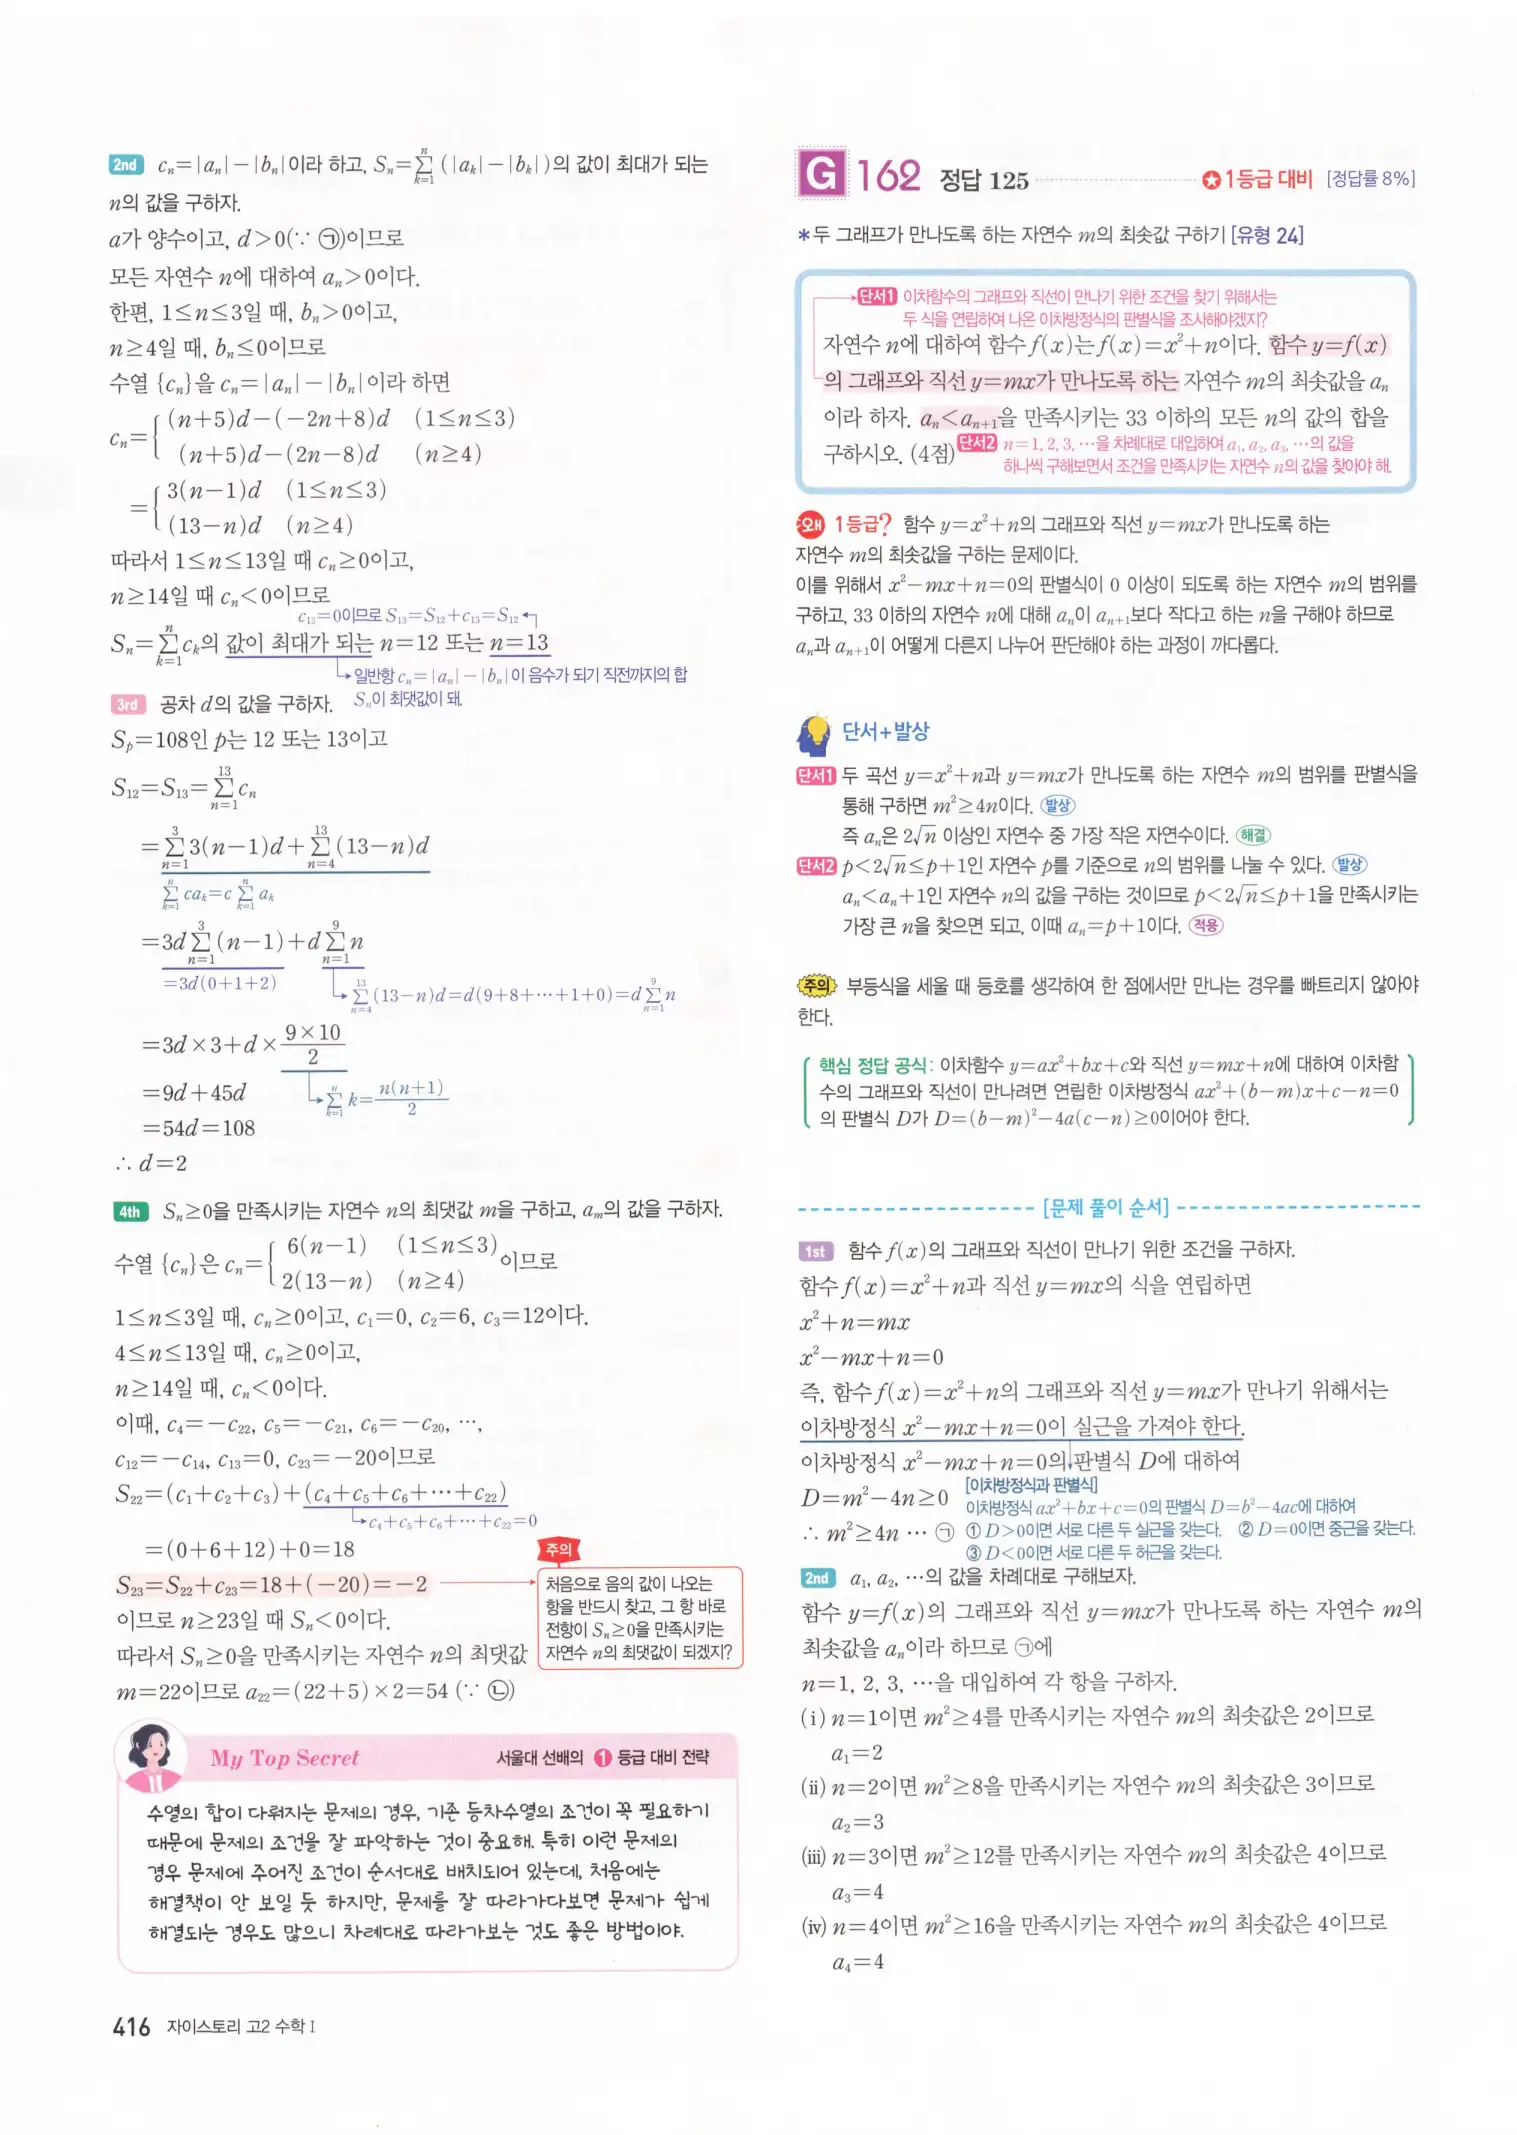 2nd cₙ=|aₙ|-|bₙ|이라 하고, Sₙ=∑(k=1→n)(|aₖ|-|bₖ|)의 값이 최대가 되는
n의 값을 구하자.
a가 양수이고, d>0(∵ ㉠)이므로
모든 자연수 n에 대하여 aₙ>0이다.
한편, 1≤n≤3일 때, bₙ>0이고,
n≥4일 때, bₙ≤0이므로
수열 {cₙ}을 cₙ=|aₙ|-|bₙ|이라 하면
cₙ={ (n+5)d-(-2n+8)d (1≤n≤3)
(n+5)d-(2n-8)d (n≥4)
={ 3(n-1)d (1≤n≤3)
(13-n)d (n≥4)
따라서 1≤n≤13일 때 cₙ≥0이고,
n≥14일 때 cₙ<0이므로
c₁₃=0이므로 S₁₃=S₁₂+c₁₃=S₁₂
Sₙ=∑(k=1→n)cₖ의 값이 최대가 되는 n=12 또는 n=13
일반항 cₙ=|aₙ|-|bₙ|이 음수가 되기 직전까지의 합
Sₙ이 최댓값이 돼.
3rd 공차 d의 값을 구하자.
Sₚ=108인 p는 12 또는 13이고
S₁₂=S₁₃=∑(n=1→13)cₙ
=∑(n=1→3)3(n-1)d+∑(n=4→13)(13-n)d
∑(k=1→n)caₖ=c∑(k=1→n)aₖ
=3d∑(n=1→3)(n-1)+d∑(n=1→9)n
=3d(0+1+2)
∑(n=4→13)(13-n)d=d(9+8+⋯+1+0)=d∑(n=1→9)n
=3d×3+d×(9×10)/2
=9d+45d
∑(k=1→n)k=n(n+1)/2
=54d=108
∴ d=2
4th Sₙ≥0을 만족시키는 자연수 n의 최댓값 m을 구하고, aₘ의 값을 구하자.
수열 {cₙ}은 cₙ={ 6(n-1) (1≤n≤3)
2(13-n) (n≥4) 이므로
1≤n≤3일 때, cₙ≥0이고, c₁=0, c₂=6, c₃=12이다.
4≤n≤13일 때, cₙ≥0이고,
n≥14일 때, cₙ<0이다.
이때, c₄=-c₂₂, c₅=-c₂₁, c₆=-c₂₀, ⋯,
c₁₂=-c₁₄, c₁₃=0, c₂₃=-20이므로
S₂₂=(c₁+c₂+c₃)+(c₄+c₅+c₆+⋯+c₂₂)
c₄+c₅+c₆+⋯+c₂₂=0
=(0+6+12)+0=18
S₂₃=S₂₂+c₂₃=18+(-20)=-2
이므로 n≥23일 때 Sₙ<0이다.
따라서 Sₙ≥0을 만족시키는 자연수 n의 최댓값
m=22이므로 a₂₂=(22+5)×2=54 (∵ ㉡)
주의
처음으로 음의 값이 나오는
항을 반드시 찾고, 그 항 바로
전항이 Sₙ≥0을 만족시키는
자연수 n의 최댓값이 되겠지?
My Top Secret 서울대 선배의 1 등급 대비 전략
수열의 합이 다뤄지는 문제의 경우, 기존 등차수열의 조건이 꼭 필요하기
때문에 문제의 조건을 잘 파악하는 것이 중요해. 특히 이런 문제의
경우 문제에 주어진 조건이 순서대로 배치되어 있는데, 처음에는
해결책이 안 보일 듯 하지만, 문제를 잘 따라가다보면 문제가 쉽게
해결되는 경우도 많으니 차례대로 따라가보는 것도 좋은 방법이야.
416 자이스토리 고2 수학 I
G 162 정답 125 1등급 대비 [정답률 8%]
*두 그래프가 만나도록 하는 자연수 m의 최솟값 구하기 [유형 24]
단서1 이차함수의 그래프와 직선이 만나기 위한 조건을 찾기 위해서는
두 식을 연립하여 나온 이차방정식의 판별식을 조사해야겠지?
자연수 n에 대하여 함수 f(x)는 f(x)=x²+n이다. 함수 y=f(x)
의 그래프와 직선 y=mx가 만나도록 하는 자연수 m의 최솟값을 aₙ
이라 하자. aₙ<aₙ₊₁을 만족시키는 33 이하의 모든 n의 값의 합을
구하시오. (4점) 단서2 n=1, 2, 3, ⋯을 차례대로 대입하여 a₁, a₂, a₃, ⋯의 값을
하나씩 구해보면서 조건을 만족시키는 자연수 n의 값을 찾아야 해.
왜 1등급? 함수 y=x²+n의 그래프와 직선 y=mx가 만나도록 하는
자연수 m의 최솟값을 구하는 문제이다.
이를 위해서 x²-mx+n=0의 판별식이 0 이상이 되도록 하는 자연수 m의 범위를
구하고, 33 이하의 자연수 n에 대해 aₙ이 aₙ₊₁보다 작다고 하는 n을 구해야 하므로
aₙ과 aₙ₊₁이 어떻게 다른지 나누어 판단해야 하는 과정이 까다롭다.
단서+발상
단서1 두 곡선 y=x²+n과 y=mx가 만나도록 하는 자연수 m의 범위를 판별식을
통해 구하면 m²≥4n이다. 발상
즉 aₙ은 2√n 이상인 자연수 중 가장 작은 자연수이다. 해결
단서2 p<2√n≤p+1인 자연수 p를 기준으로 n의 범위를 나눌 수 있다. 발상
aₙ<aₙ+1인 자연수 n의 값을 구하는 것이므로 p<2√n≤p+1을 만족시키는
가장 큰 n을 찾으면 되고, 이때 aₙ=p+1이다. 적용
주의 부등식을 세울 때 등호를 생각하여 한 점에서만 만나는 경우를 빠트리지 않아야
한다.
핵심 정답 공식: 이차함수 y=ax²+bx+c와 직선 y=mx+n에 대하여 이차함
수의 그래프와 직선이 만나려면 연립한 이차방정식 ax²+(b-m)x+c-n=0
의 판별식 D가 D=(b-m)²-4a(c-n)≥0이어야 한다.
[문제 풀이 순서]
1st 함수 f(x)의 그래프와 직선이 만나기 위한 조건을 구하자.
함수 f(x)=x²+n과 직선 y=mx의 식을 연립하면
x²+n=mx
x²-mx+n=0
즉, 함수 f(x)=x²+n의 그래프와 직선 y=mx가 만나기 위해서는
이차방정식 x²-mx+n=0이 실근을 가져야 한다.
이차방정식 x²-mx+n=0의 판별식 D에 대하여
[이차방정식과 판별식]
D=m²-4n≥0 이차방정식 ax²+bx+c=0의 판별식 D=b²-4ac에 대하여
∴ m²≥4n ⋯ ㉠ ① D>0이면 서로 다른 두 실근을 갖는다. ② D=0이면 중근을 갖는다.
③ D<0이면 서로 다른 두 허근을 갖는다.
2nd a₁, a₂, ⋯의 값을 차례대로 구해보자.
함수 y=f(x)의 그래프와 직선 y=mx가 만나도록 하는 자연수 m의
최솟값을 aₙ이라 하므로 ㉠에
n=1, 2, 3, ⋯을 대입하여 각 항을 구하자.
(i) n=1이면 m²≥4를 만족시키는 자연수 m의 최솟값은 2이므로
a₁=2
(ii) n=2이면 m²≥8을 만족시키는 자연수 m의 최솟값은 3이므로
a₂=3
(iii) n=3이면 m²≥12를 만족시키는 자연수 m의 최솟값은 4이므로
a₃=4
(iv) n=4이면 m²≥16을 만족시키는 자연수 m의 최솟값은 4이므로
a₄=4